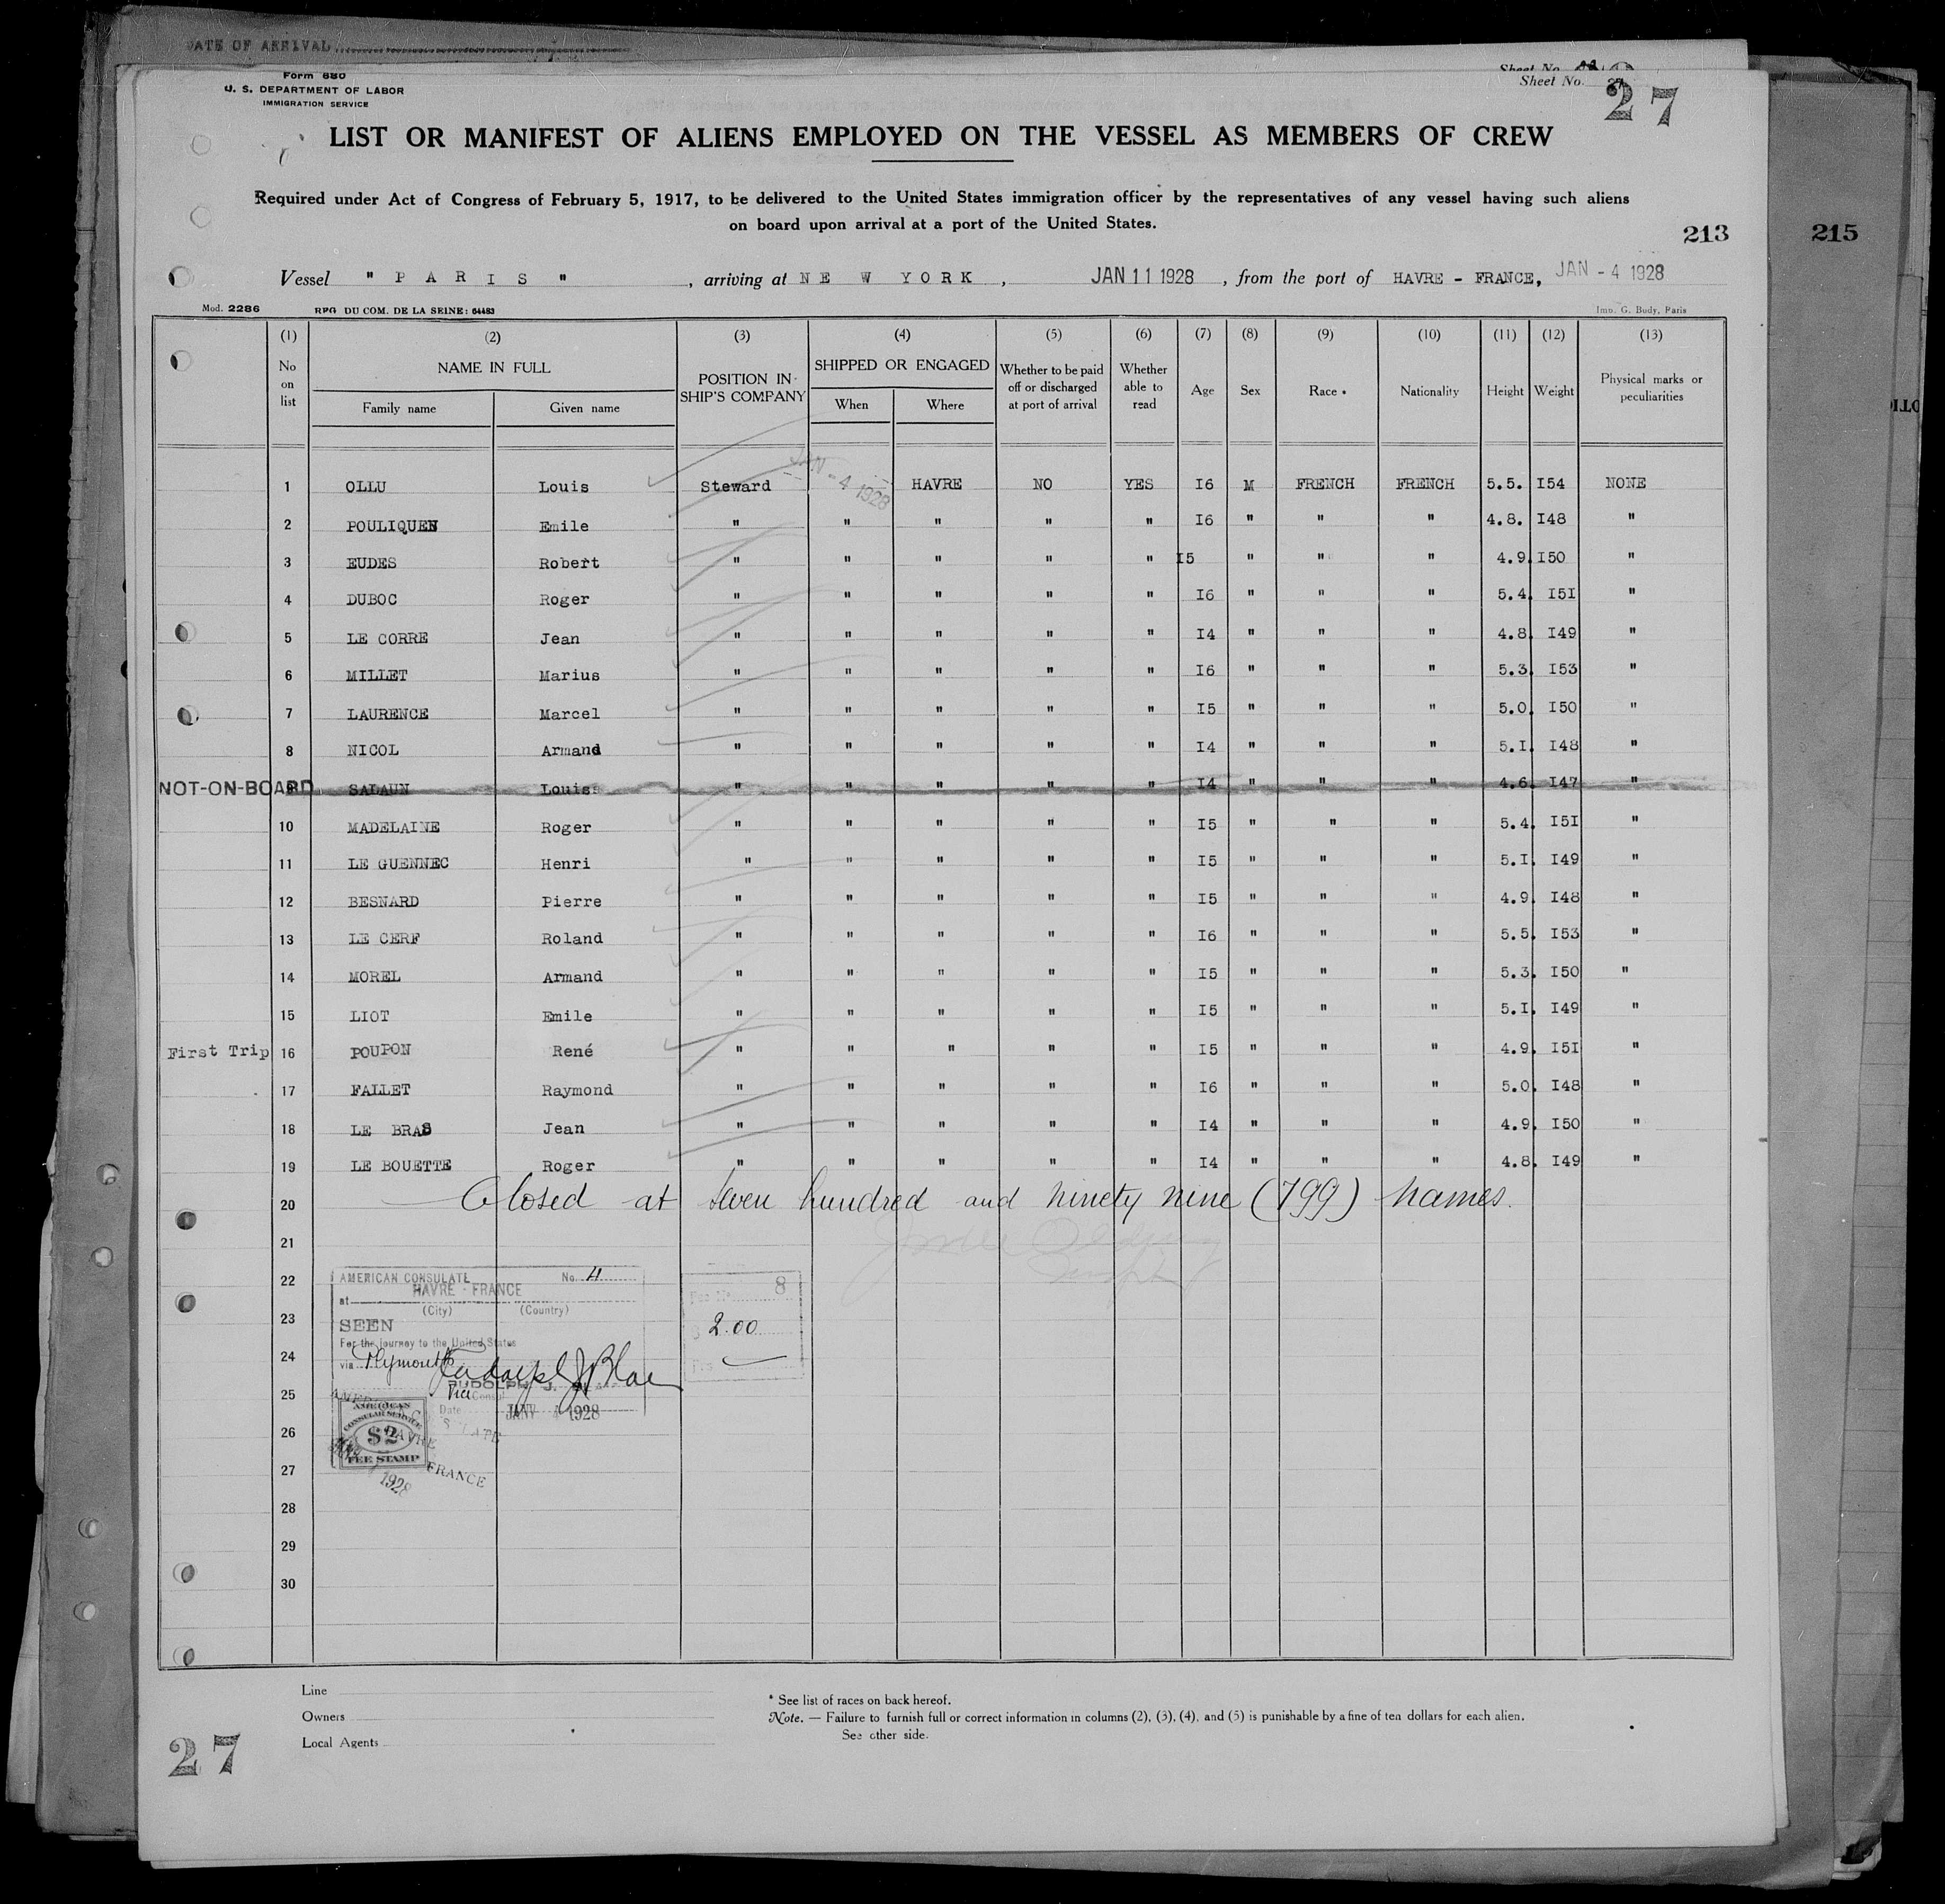 DATE OF ARRIVAL
Sheet No.
Form 680
U. S. DEPARTMENT OF LABOR
IMMIGRATION SERVICE
Sheet No. 27
LIST OR MANIFEST OF ALIENS EMPLOYED ON THE VESSEL AS MEMBERS OF CREW
Required under Act of Congress of February 5, 1917, to be delivered to the United States immigration officer by the representatives of any vessel having such aliens
on board upon arrival at a port of the United States.
213 215
Vessel " PARIS " , arriving at NEW YORK , JAN 11 1928 , from the port of HAVRE - FRANCE, JAN - 4 1928
Mod. 2286 RPG DU COM. DE LA SEINE: 64483 Imp. G. Body, Paris
(1) (2) (3) (4) (5) (6) (7) (8) (9) (10) (11) (12) (13)
No on list NAME IN FULL Family name Given name POSITION IN SHIP'S COMPANY SHIPPED OR ENGAGED When Where Whether to be paid off or discharged at port of arrival Whether able to read Age Sex Race * Nationality Height Weight Physical marks or peculiarities
1 OLLU Louis Steward JAN - 4 1928 HAVRE NO YES I6 M FRENCH FRENCH 5.5. I54 NONE
2 POULIQUEN Emile " " " " " I6 " " " 4.8. I48 "
3 EUDES Robert " " " " " I5 " " " 4.9. I50 "
4 DUBOC Roger " " " " " I6 " " " 5.4. I5I "
5 LE CORRE Jean " " " " " I4 " " " 4.8. I49 "
6 MILLET Marius " " " " " I6 " " " 5.3. I53 "
7 LAURENCE Marcel " " " " " I5 " " " 5.0. I50 "
8 NICOL Armand " " " " " I4 " " " 5.I. I48 "
NOT-ON-BOARD 9 SALAUN Louis " " " " " I4 " " " 4.6. I47 "
10 MADELAINE Roger " " " " " I5 " " " 5.4. I5I "
11 LE GUENNEC Henri " " " " " I5 " " " 5.I. I49 "
12 BESNARD Pierre " " " " " I5 " " " 4.9. I48 "
13 LE CERF Roland " " " " " I6 " " " 5.5. I53 "
14 MOREL Armand " " " " " I5 " " " 5.3. I50 "
15 LIOT Emile " " " " " I5 " " " 5.I. I49 "
First Trip 16 POUPON René " " " " " I5 " " " 4.9. I5I "
17 FALLET Raymond " " " " " I6 " " " 5.0. I48 "
18 LE BRAS Jean " " " " " I4 " " " 4.9. I50 "
19 LE BOUETTE Roger " " " " " I4 " " " 4.8. I49 "
20 Closed at seven hundred and ninety nine (799) names.
21
22 AMERICAN CONSULATE No. 4 8
at HAVRE - FRANCE
(City) (Country)
23 SEEN 2.00
For the journey to the United States
24 via Plymouth
RUDOLPH J.
25 Vice Consul
Date JAN 4 1928
AMERICAN CONSULAR SERVICE
26 $2
FEE STAMP
HAVRE
27 FRANCE
1928
28
29
30
Line
Owners
Local Agents
* See list of races on back hereof.
Note. — Failure to furnish full or correct information in columns (2), (3), (4), and (5) is punishable by a fine of ten dollars for each alien.
See other side.
27